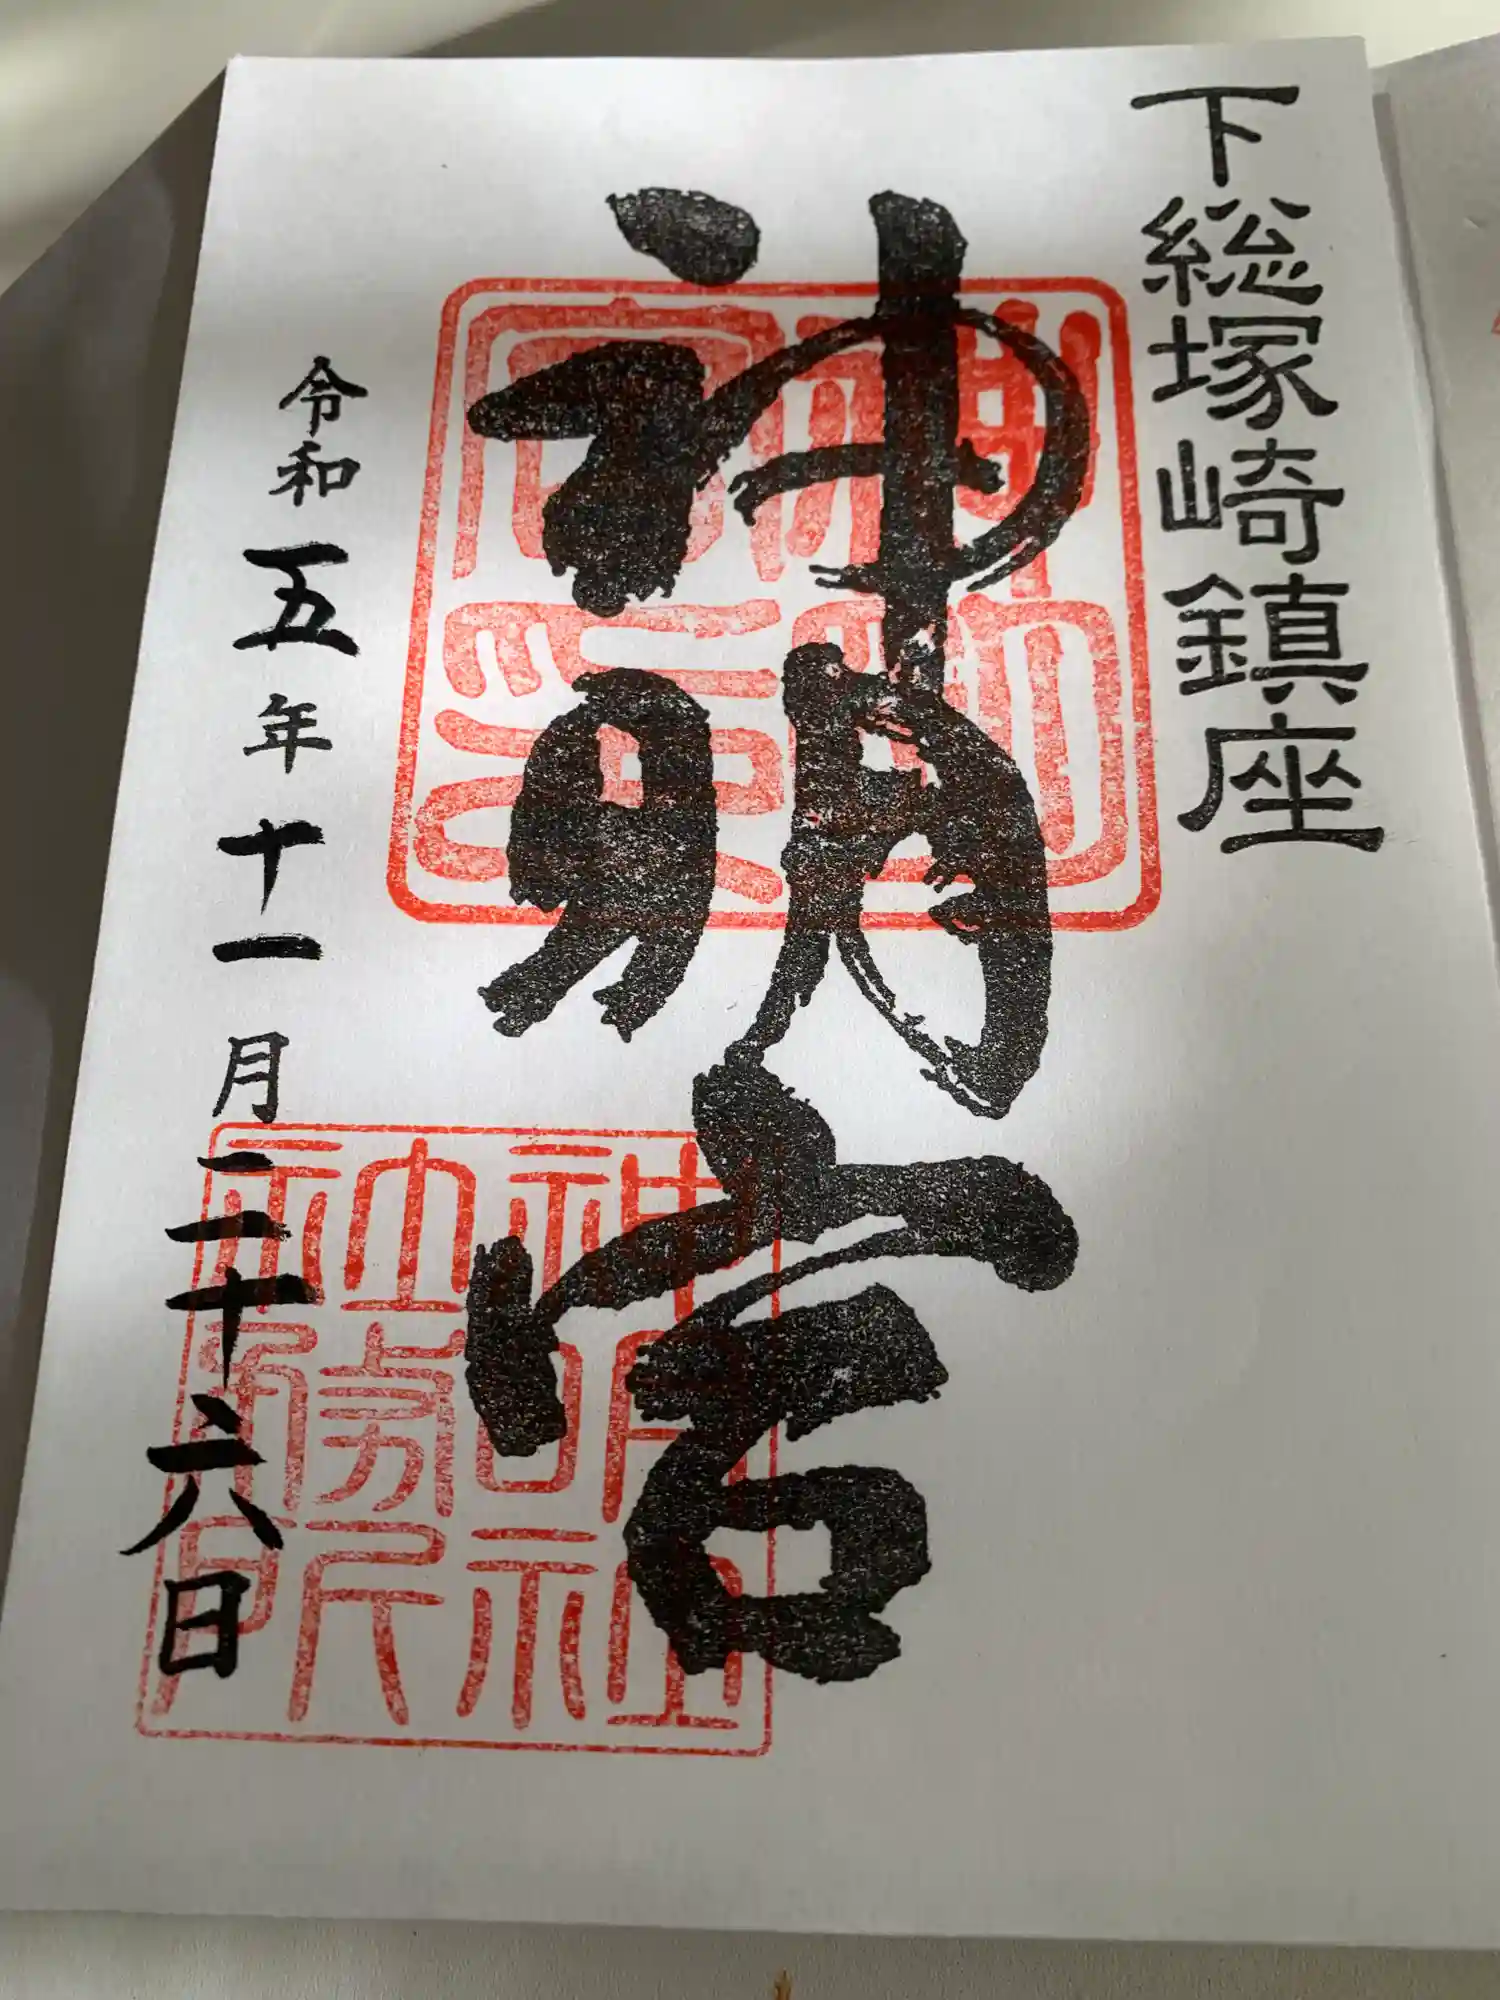 下総塚崎鎮座
神明宮
神明宮印
神明社社務所印
令和五年十一月二十六日